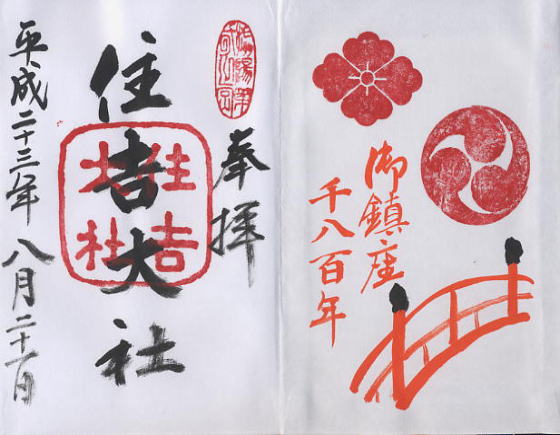 御鎮座
千八百年
奉拝
住吉大社
住吉
大社
平成二十三年八月二十一日